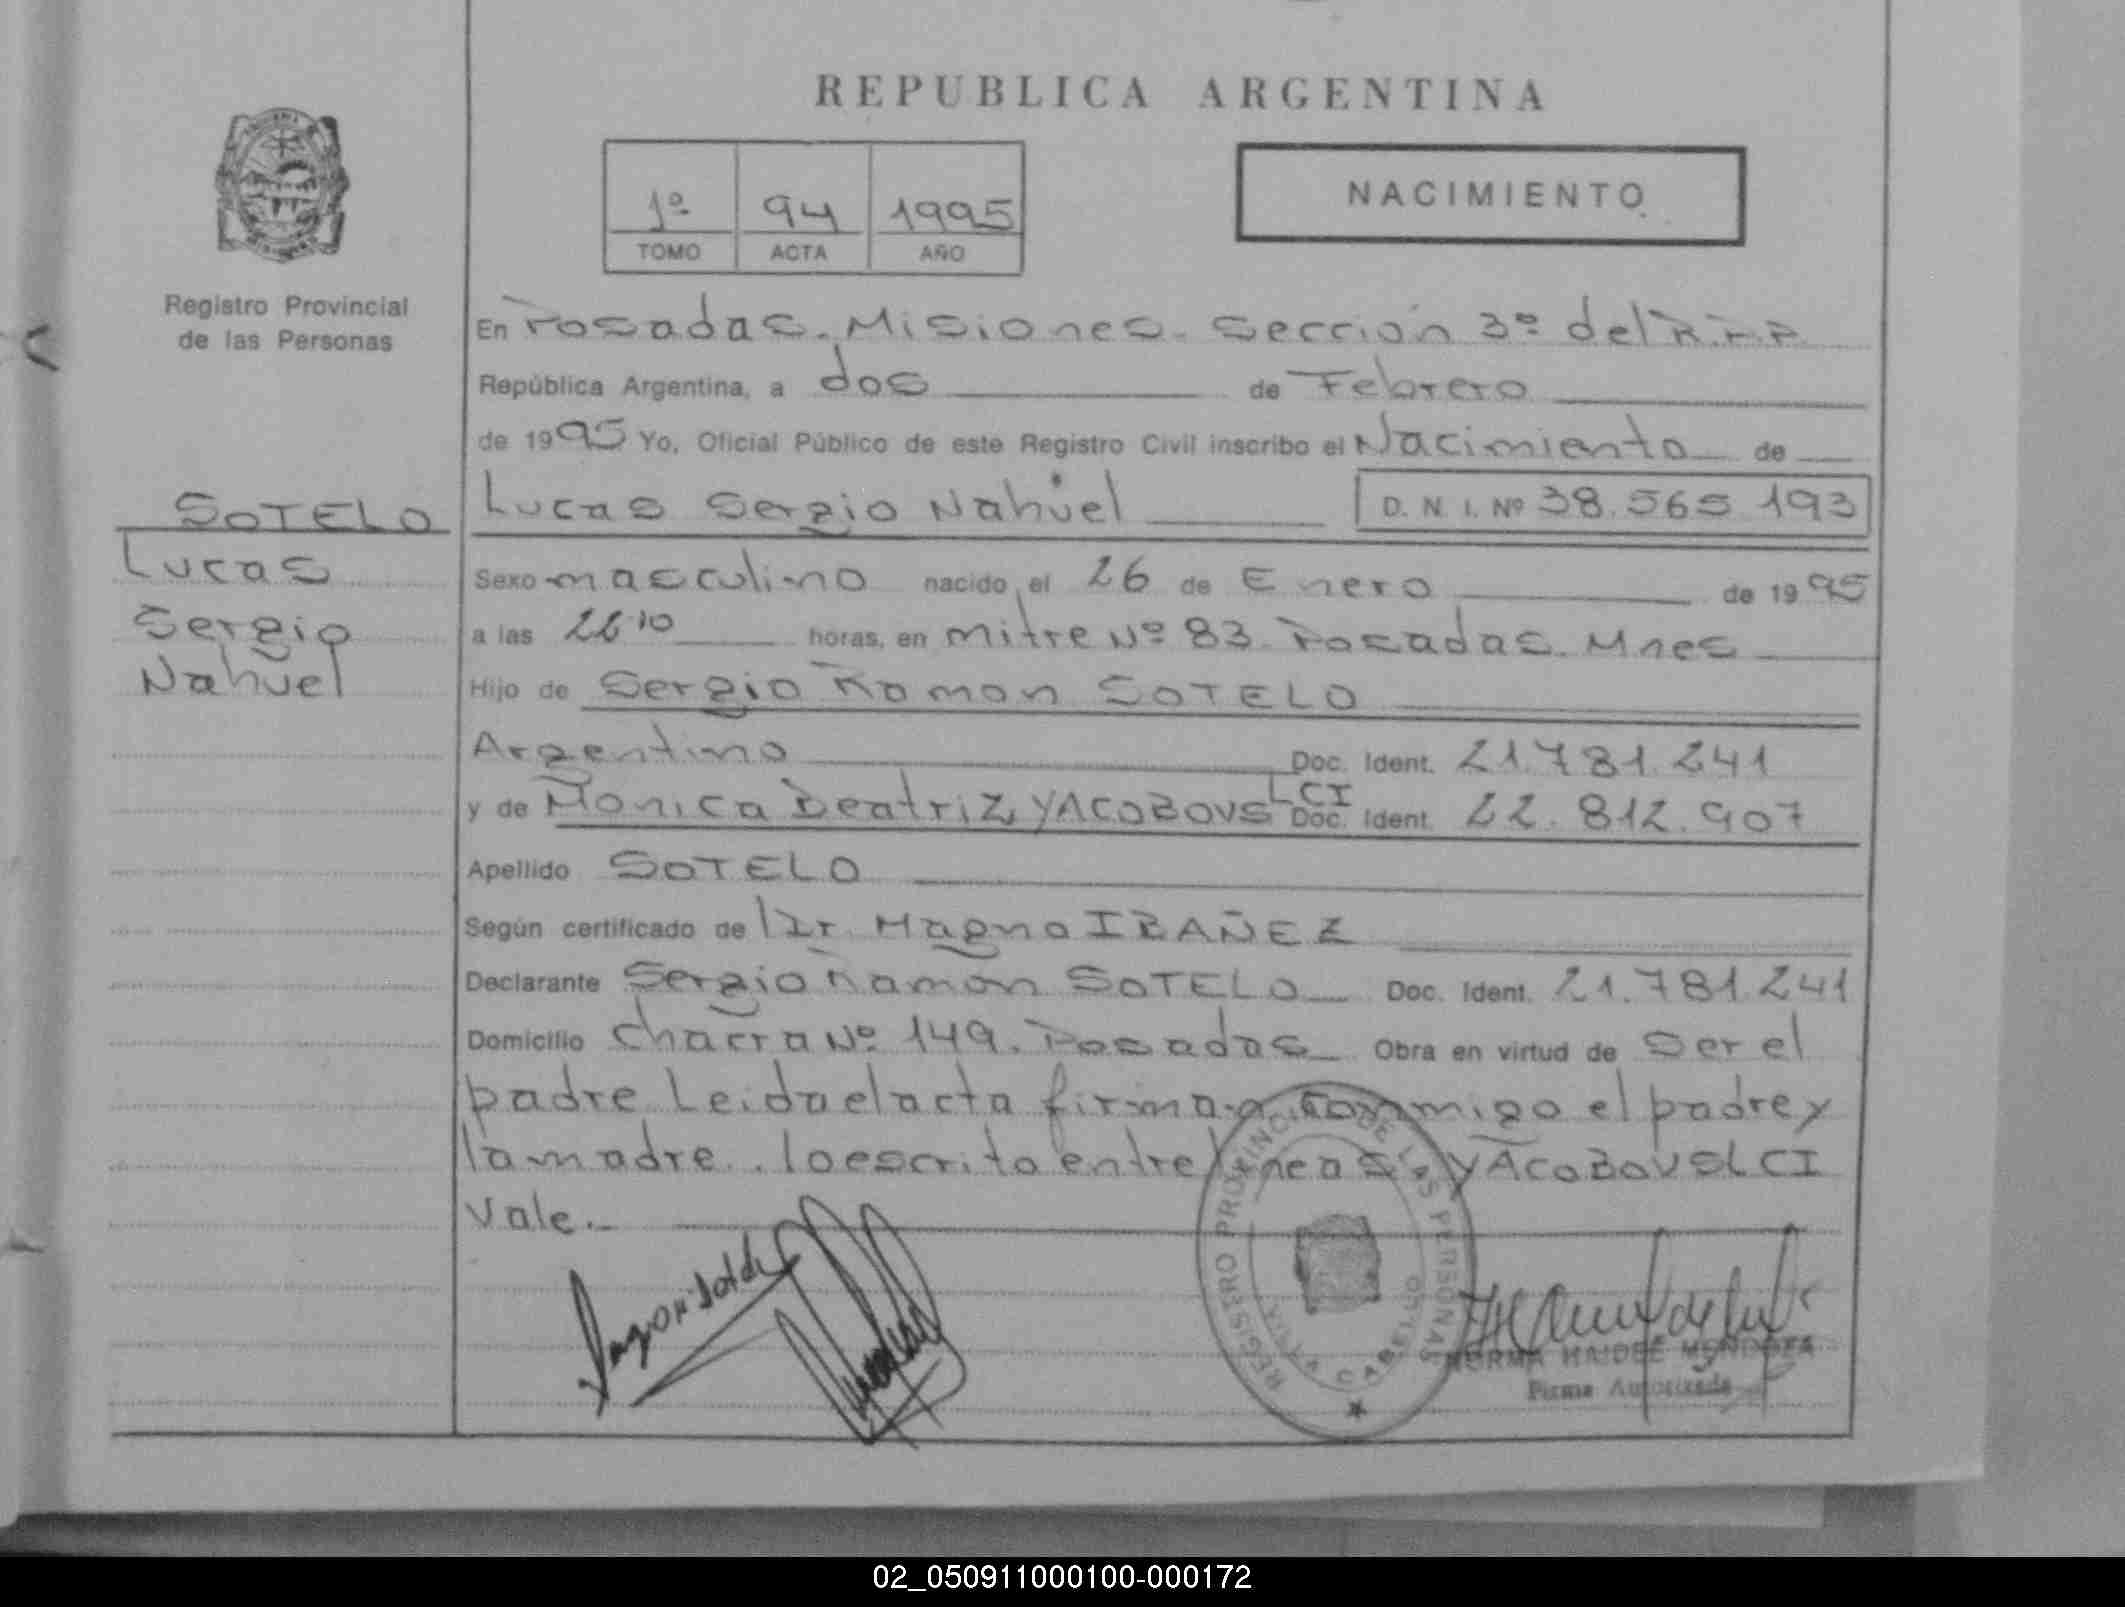 REPUBLICA ARGENTINA
1º 94 1995
TOMO ACTA AÑO
NACIMIENTO
Registro Provincial
de las Personas
SOTELO
Lucas
Sergio
Nahuel
En Posadas. Misiones. Sección 3º del R.P.P.
República Argentina, a dos de Febrero
de 1995 Yo, Oficial Público de este Registro Civil inscribo el Nacimiento de
Lucas Sergio Nahuel D. N. I. Nº 38.565.193
Sexo masculino nacido el 26 de Enero de 1995
a las 22.10 horas, en Mitre Nº 83. Posadas. Mnes
Hijo de Sergio Ramon SOTELO
Argentino Doc. Ident. 21.781.241
LCI
y de Monica Beatriz YACOBOVS Doc. Ident. 22.812.907
Apellido SOTELO
Según certificado de Dr. Magno IBAÑEZ
Declarante Sergio Ramon SOTELO Doc. Ident. 21.781.241
Domicilio Chacra Nº 149. Posadas Obra en virtud de Ser el
padre Leida el acta firman conmigo el padre y
la madre.. lo escrito entre lineas. YACOBOVSLCI
Vale.
REGISTRO PROVINCIAL DE LAS PERSONAS
NORMA HAIDEE MENDOZA
Firma Autorizada
02_050911000100-000172